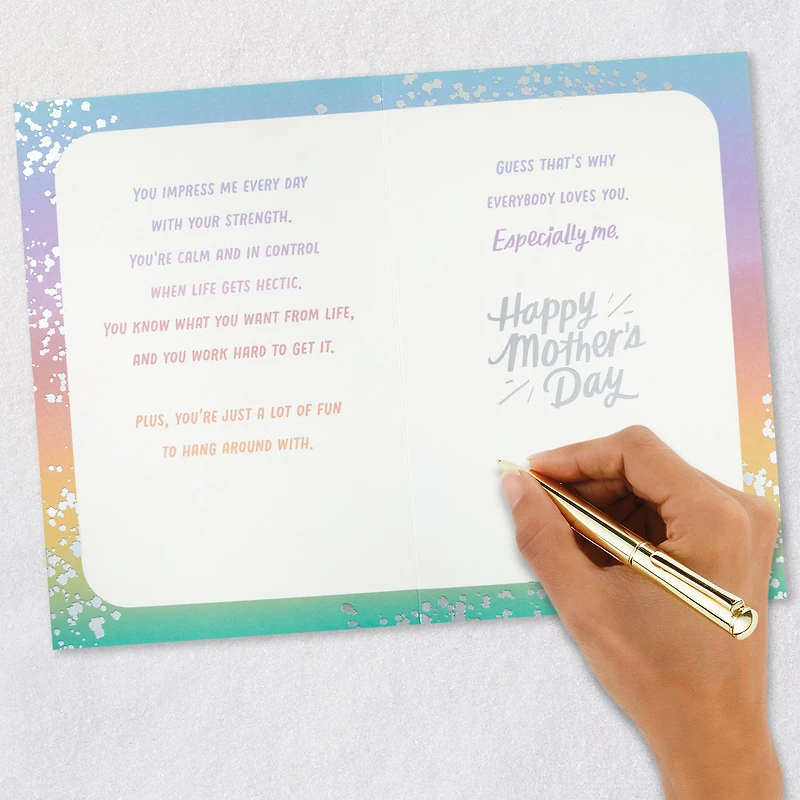 YOU IMPRESS ME EVERY DAY
WITH YOUR STRENGTH.
YOU'RE CALM AND IN CONTROL
WHEN LIFE GETS HECTIC.
YOU KNOW WHAT YOU WANT FROM LIFE,
AND YOU WORK HARD TO GET IT.
PLUS, YOU'RE JUST A LOT OF FUN
TO HANG AROUND WITH.
GUESS THAT'S WHY
EVERYBODY LOVES YOU.
Especially me.
Happy
Mother's
Day